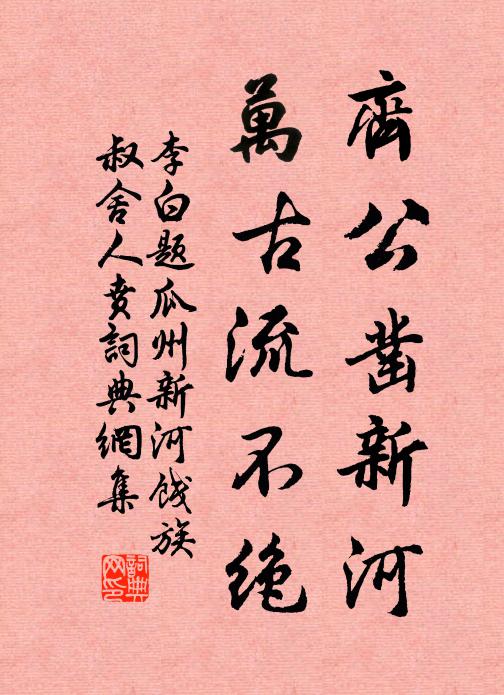 齊公鑿新河
萬古流不絕
李白題瓜州新河餞族
叔舍人賁詞典網集
詞典
网印